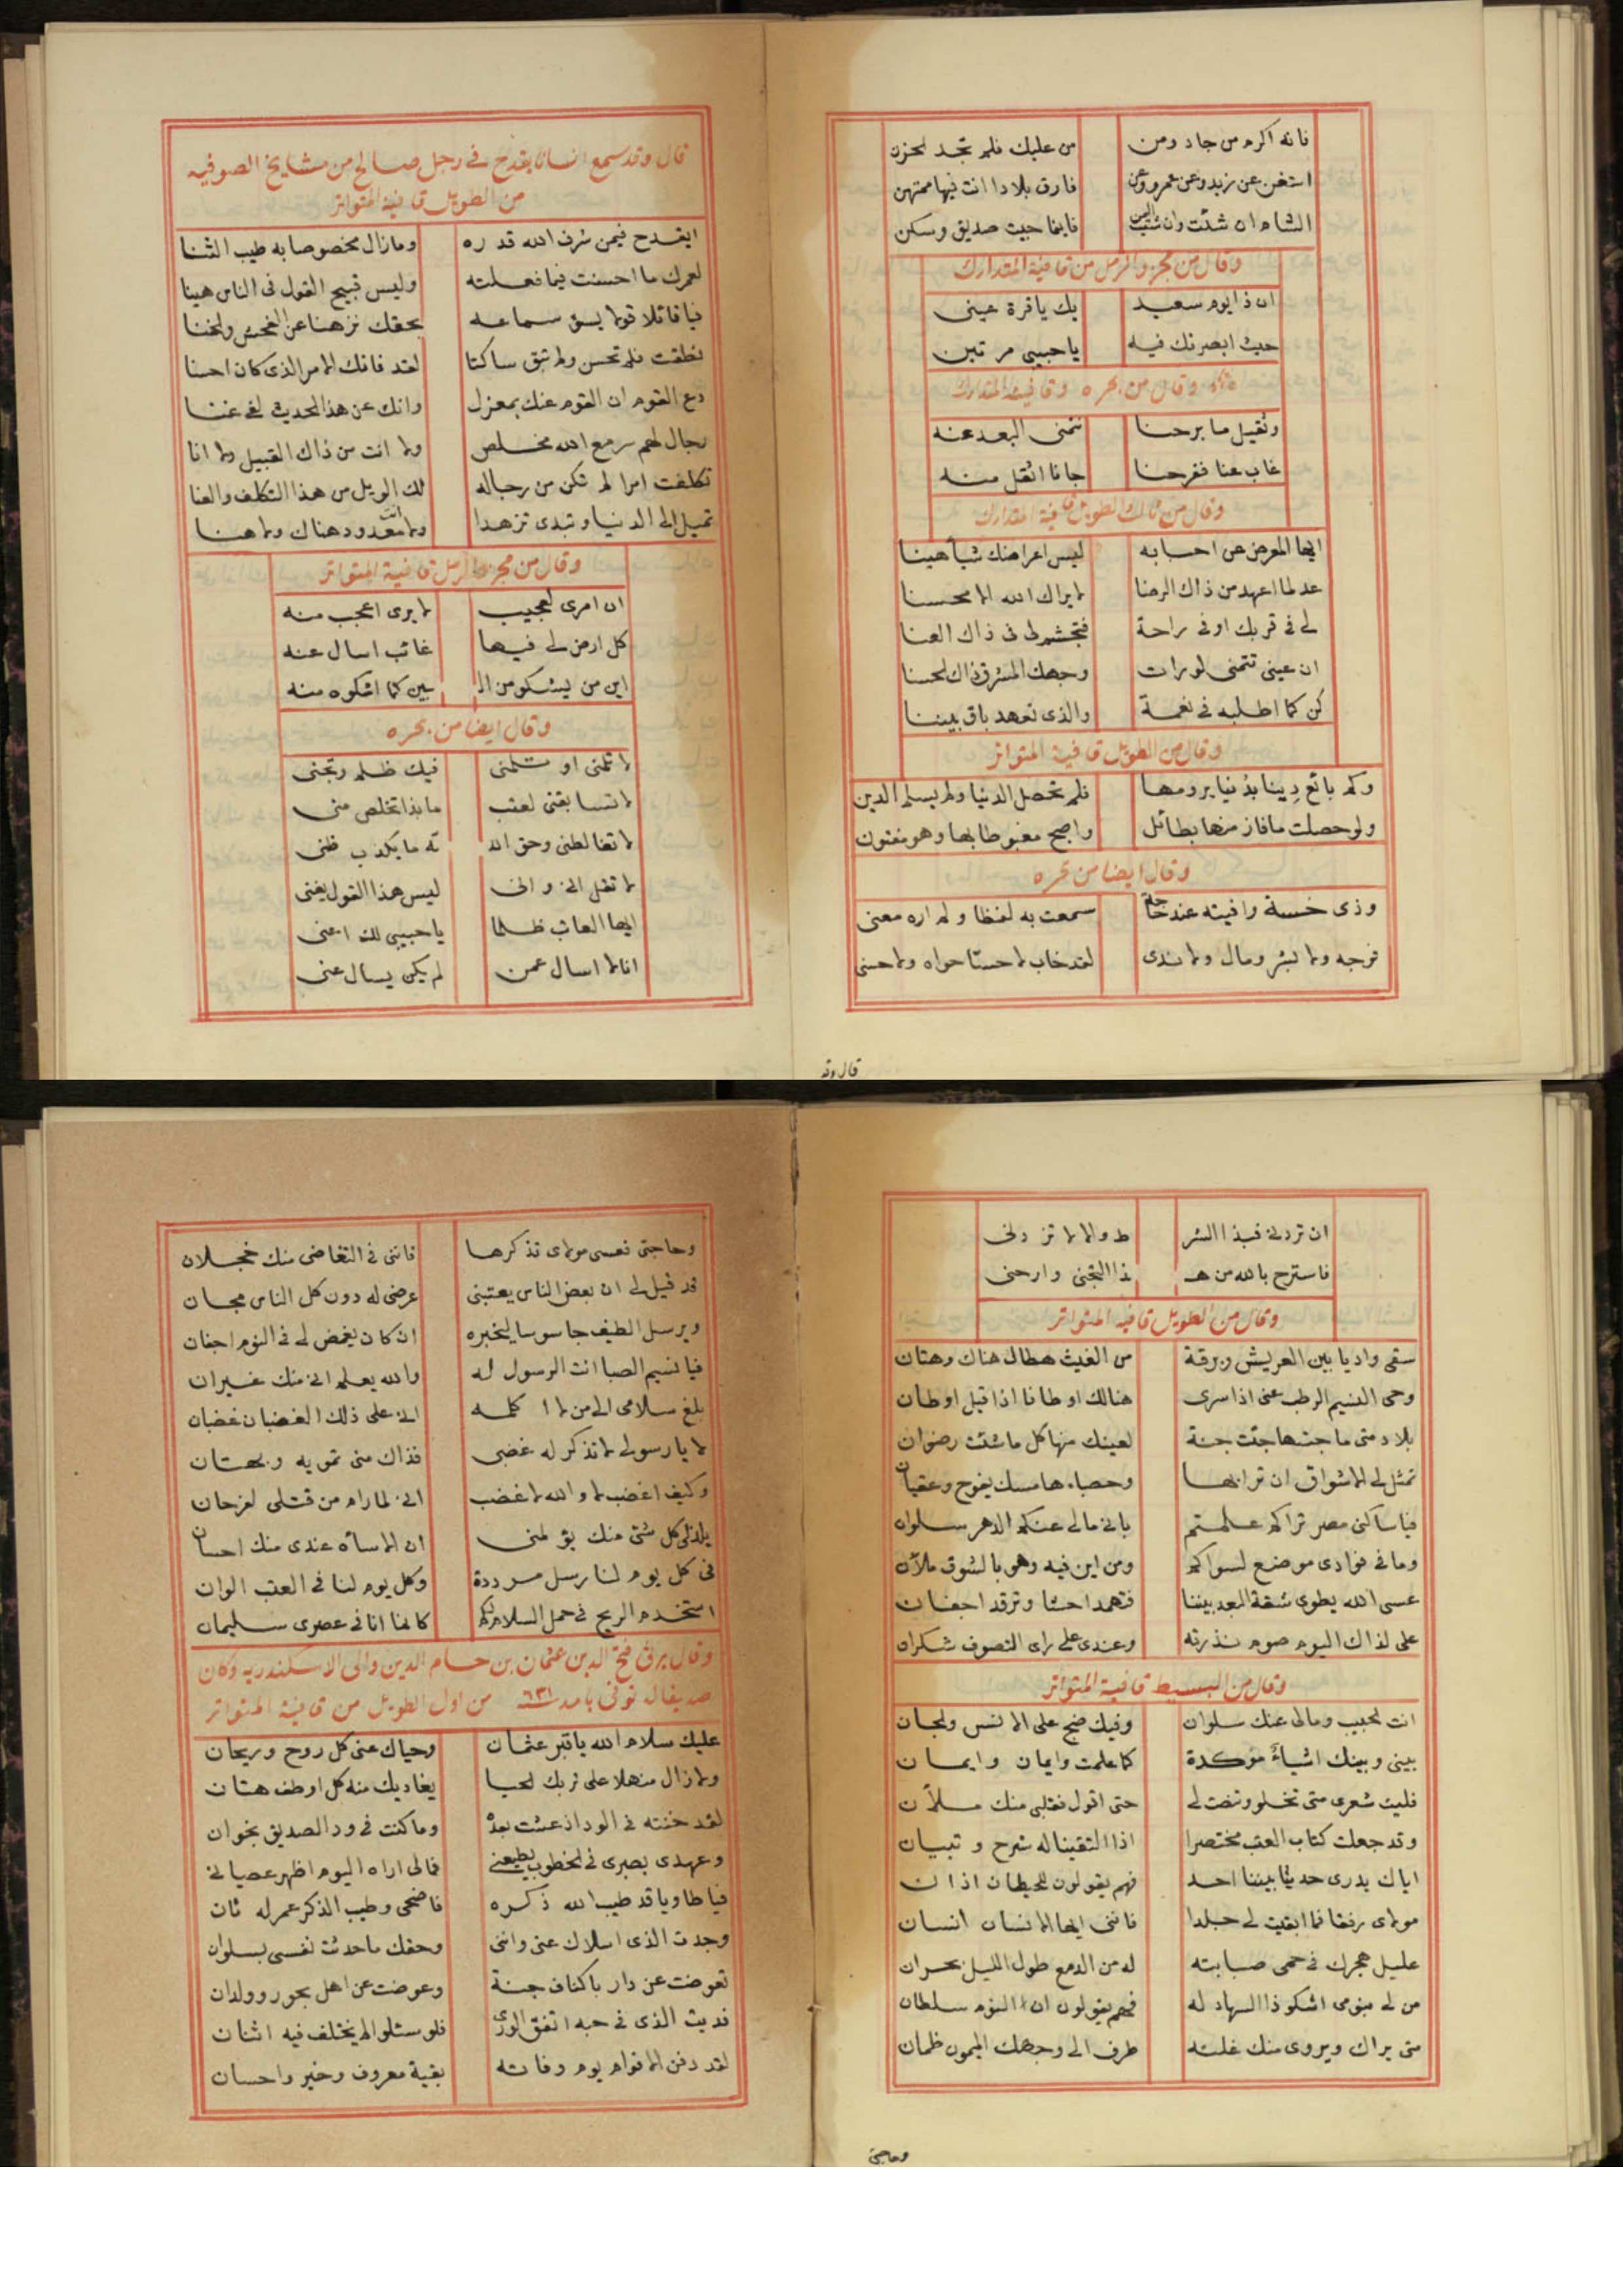 فانه اكرم من جاد ومن من عليك فلم تجد لحزن
استغن عن زيد وعن عمرو وعن فارق بلادا انت فيها ممتهن
الشام ان شئت وان شئت اليمن فاينما جيت صديق وسكن
وقال من مجزو الرمل من قافية المتدارك
ان ذا يوم سعيد بك يا قرة عيني
حيث ابصرتك فيه يا حبيبي مرتين
وقال من بحره وقافية المتدارك
وثقيل ما برحنا نتمنى البعد عنه
غاب عنا ففرحنا جانا اثقل منه
وقال من ثالث الطويل قافية المتدارك
ايها المعرض عن احبابه ليس اعراضك شيأ هينا
عد لما اعهد من ذاك الرضا لا يراك الله الا محسنا
لى فى قربك اوفى راحة فتجشم لى فى ذاك العنا
ان عينى تتمنى لو رات وجهك المشرق ذاك الحسنا
كن كما اطلبه فى نعمة والذى تعهد باق بيننا
وقال من الطويل قافية المتواتر
وكم بائع دينا بدنيا يرومها فلم تحصل الدنيا ولم يسلم الدين
ولو حصلت ما فاز منها بطائل واصبح مغبوطا بها وهو مفتون
وقال ايضا من بحره
وذى خسة وافيته عند حاجة سمعت به لفظا ولم اره معنى
فوجه ولا بشر ومال ولا ندى لقد خاب لا حسنا حواه ولا حسنى
قال وقد
قال وقد سمع انسانا يقدح فى رجل صالح من مشايخ الصوفيه
من الطويل قافية المتواتر
ايقدح فيمن شرف الله قدره وما زال مخصوصا به طيب الثنا
لعمرك ما احسنت فيما فعلته وليس قبيح القول فى الناس هينا
فيا قائلا قولا يسؤ سماعه بحقك نزهنا عن الفحش والخنا
نطقت فلم تحسن ولم تبق ساكتا لقد فاتك الامر الذى كان احسنا
دع القوم ان القوم عنك بمعزل وانك عن هذا الحديث لفى غنا
رجال لهم سر مع الله مخلص ولا انت من ذاك القبيل ولا انا
تكلفت امرا لم تكن من رجاله لك الويل من هذا التكلف والعنا
تميل الى الدنيا وتبدى تزهدا ولا انت معدود هناك ولا هنا
وقال من مجزو الرمل قافية المتواتر
ان امرى لعجيب لا يرى اعجب منه
كل ارض لى فيها غائب اسال عنه
اين من يشكو من الـ ـبين كما اشكوه منه
وقال ايضا من بحره
لا تلمنى او تلمنى فيك ظلم وتجنى
لا تسابقنى لعتب ما بذا تخلص منى
لا تغالطنى وحق اللـ ـه ما يكذب ظنى
لا تقل انى وانى ليس هذا القول يغنى
ايها العاتب ظلما يا حبيبى لك اعنى
انا لا اسال عمن لم يكن يسال عنى
ان تردنى فبذا الشر ط والا لا تزدنى
فاسترح بالله من هـ ـذا التجنى وارحنى
وقال من الطويل قافية المتواتر
سقى واديا بين العريش وبرقة من الغيث هطال هناك وهتان
وحى النسيم الرطب عنى اذا سرى هنالك اوطانا اذا قيل اوطان
بلاد متى ما جئتها جئت جنة لعينك منها كل ما شئت رضوان
تمثل لى الاشواق ان ترابها وحصباءها مسك يفوح وعقيان
فيا ساكنى مصر تراكم علمتم بانى مالى عنكم الدهر سلوان
وما فى فوادى موضع لسواكم ومن اين فيه وهو بالشوق ملآن
عسى الله يطوى شقة البعد بيننا فتهدا حشا وترقد اجفان
على لذاك اليوم صوم نذرته وعندى على راى التصوف شكران
وقال من البسيط قافية المتواتر
انت الحبيب ومالى عنك سلوان وفيك ضج على الانس والجان
بينى وبينك اشياء موكدة كما علمت وايمان وايمان
فليت شعرى متى تخلو وتنصت لى حتى اقول فقلبى منك ملآن
وقد جعلت كتاب العتب مختصرا اذا التقينا له شرح وتبيان
اياك يدرى حديثا بيننا احد فهم يقولون للحيطان اذان
مولاى رفقا فما ابقيت لى جلدا فاننى ايها الانسان انسان
عليل هجرك فى حمى صبابته له من الدمع طول الليل بحران
من لى بنومى اشكو ذا السهاد له فهم يقولون ان النوم سلطان
متى يراك ويروى منك غلته طرف الى وجهك الميمون ظمان
وحاجتى
وحاجتى فعسى مولاى تذكرها فاننى فى التقاضى منك خجلان
قد قيل لى ان بعض الناس يعتبنى عرضى له دون كل الناس مجان
ويرسل الطيف جاسوسا ليخبره ان كان يغمض لى فى النوم اجفان
فيا نسيم الصبا انت الرسول له والله يعلم انى منك غيران
بلغ سلامى الى من لا اكلمه انى على ذلك الغضبان غضبان
لا يا رسولى لا تذكر له غضبى فذاك منى تمويه وبهتان
وكيف اغضب لا والله لا غضب انى لما رام من قتلى لفرحان
يلذلى كل شئ منك يؤلمنى ان الاسأة عندى منك احسان
فى كل يوم لنا رسل مرددة وكل يوم لنا فى العتب الوان
استخدم الريح فى حمل السلام لكم كانما انا فى عصرى سليمان
وقال يرثى فتح الدين عثمان بن حسام الدين والى الاسكندريه وكان
صديقا له توفى بامد سنة ٦٣١ من اول الطويل من قافية المتواتر
عليك سلام الله يا قبر عثمان وحياك عنى كل روح وريحان
ولا زال منهلا على تربك الحيا يغاديك منه كل اوطف هتان
لقد خنته فى الود اذ عشت بعده وما كنت فى ود الصديق بخوان
وعهدى بصبرى فى الخطوب يطيعنى فمالى اراه اليوم اظهر عصيانى
فيا ثاويا قد طيب الله ذكره فاضحى وطيب الذكر عمر له ثان
وجدت الذى اسلاك عنى واننى وحقك ما حدثت نفسى بسلوان
تعوضت عن دار باكناف جنة وعوضت عن اهل بحور وولدان
فديت الذى فى حبه اتفق الورى فلو سئلوا لم يختلف فيه اثنان
لقد دفن الاقوام يوم وفاته بقية معروف وخير واحسان